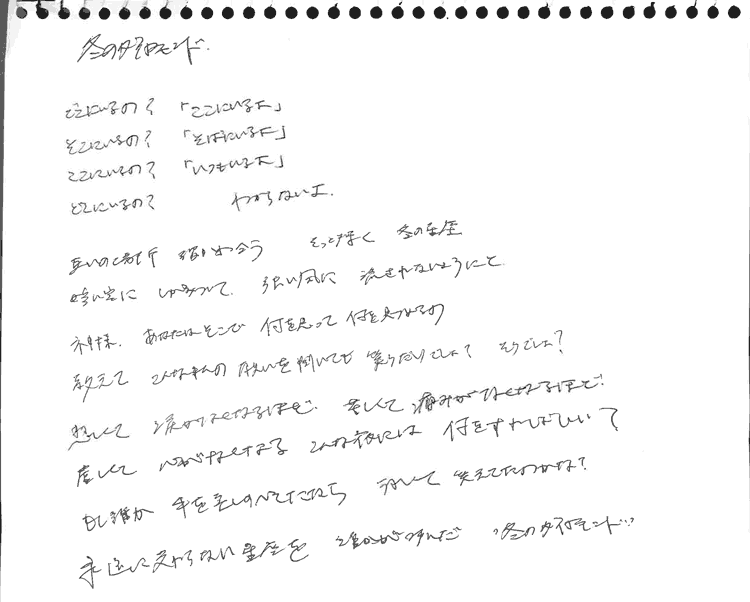 冬のダイヤモンド.
どこにいるの? 「ここにいるよ」
そこにいるの? 「そばにいるよ」
ここにいるの? 「いつもいるよ」
どこにいるの? わからないよ.
互いの場所 競い合う そっと輝く 冬の星座
暗い空に しがみついて. 強い風に 流されないようにと
神様. あなたはそこで 何を思って 何を見つめるの
教えて こんな私の 願いを聞いても 笑うだけでしょ? そうでしょ?
悲しくて 涙がなくなるほど. 苦しくて 痛みがなくなるほど.
虚しくて 心がなくなる こんな夜には 何をすればいい?
もし誰か 手を差しのべてたなら うまいて 笑えてたのかな?
永遠に変わらない星座を 誰かが呼んだ "冬のダイヤモンド"